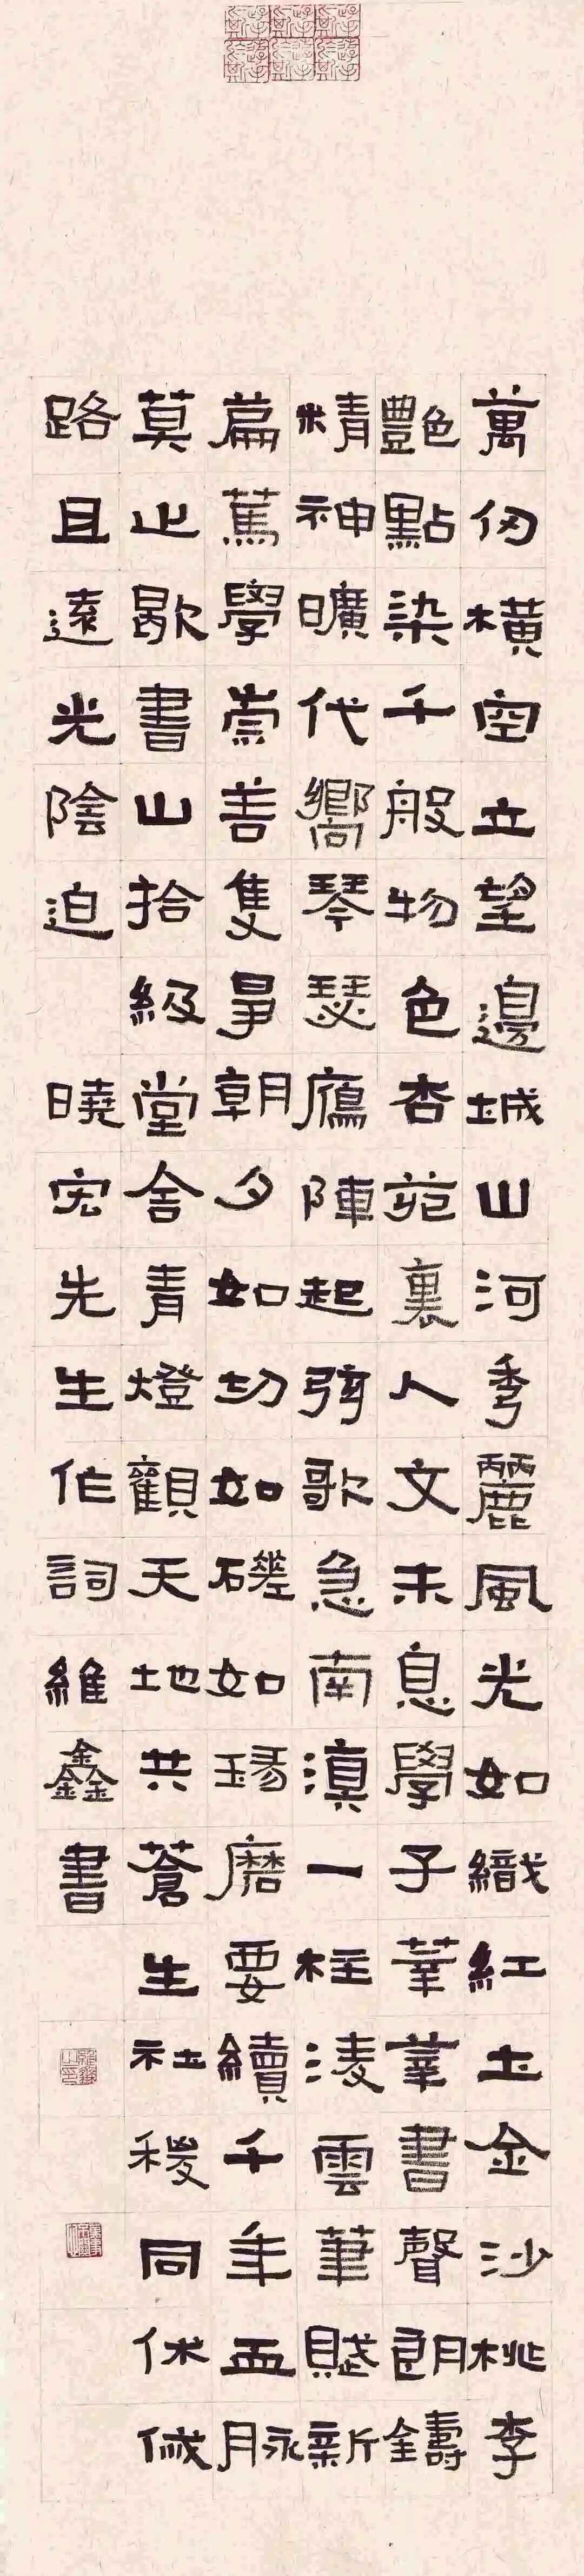 萬仞橫空立望邊城山河秀麗風光如織紅土金沙桃李
艷點染千般物色杏苑裏人文未息學子莘莘書聲朗鑄
精神曠代嚮琴瑟鴈陣起弦歌急南滇一柱淩雲筆賦新
篇篤學崇善隻爭朝夕如切如磋如琢磨要續千年血脈
莫止歇書山拾級堂舍青燈觀天地共蒼生社稷同休戚
路且遠光陰迫 曉宏先生作詞維鑫書